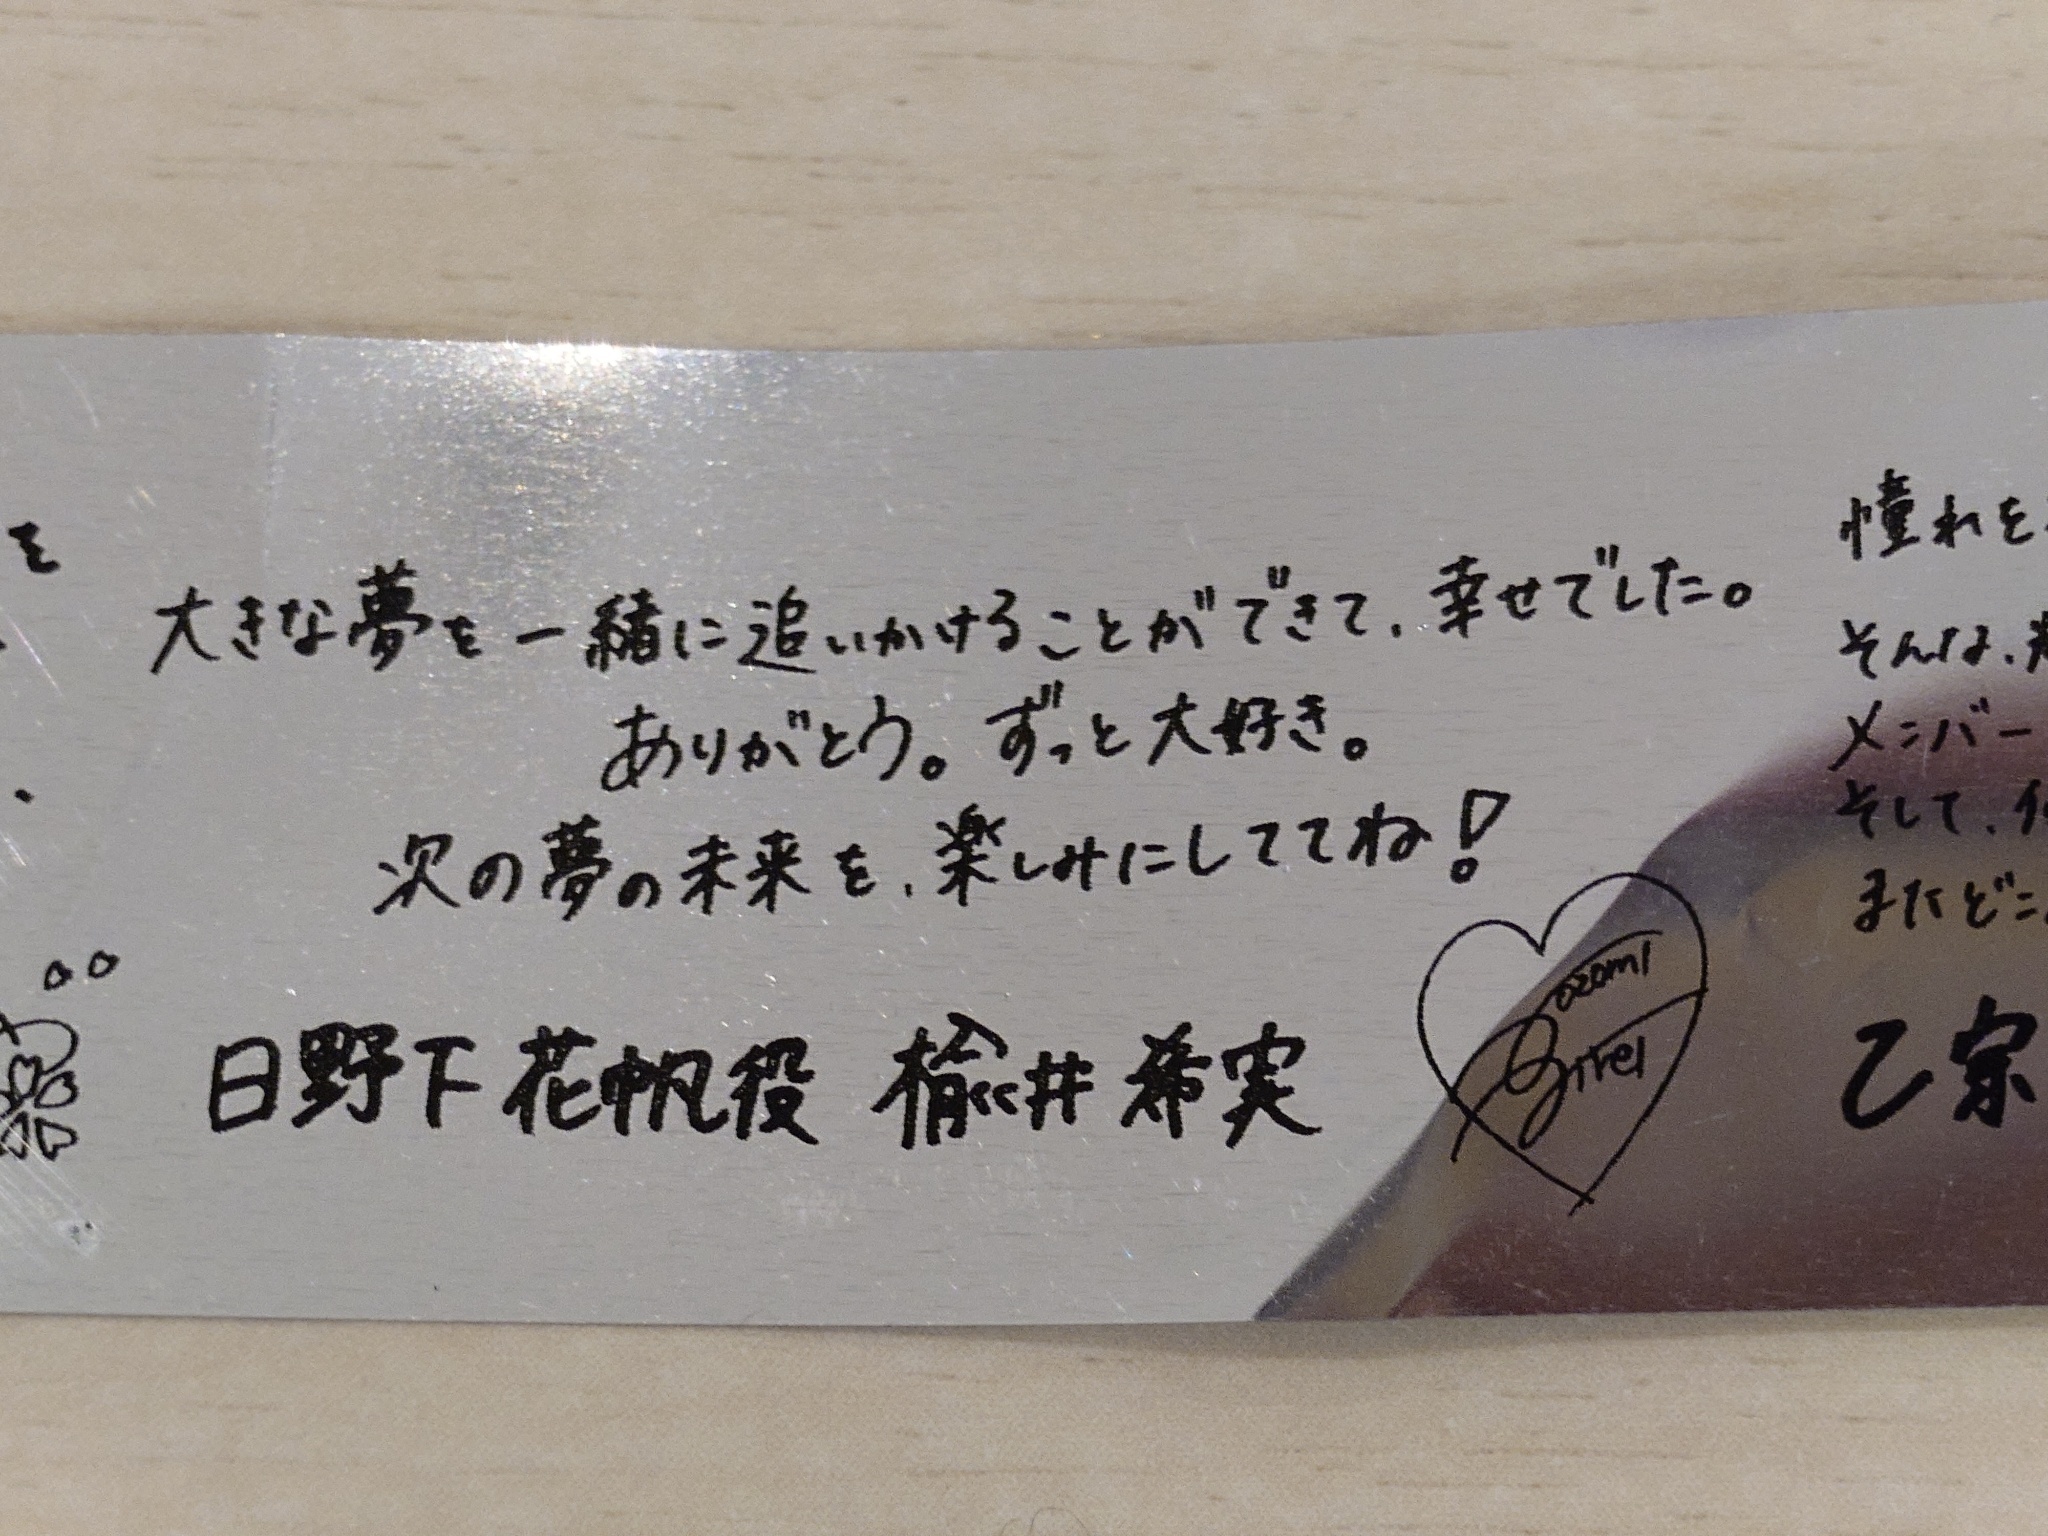 を
大きな夢を一緒に追いかけることができて、幸せでした。
ありがとう。ずっと大好き。
次の夢の未来を、楽しみにしててね!
日野下花帆役 楡井希実
Nozomi
Nirei
憧れを
そんな、
メンバー
そして、
またどこ
乙宗